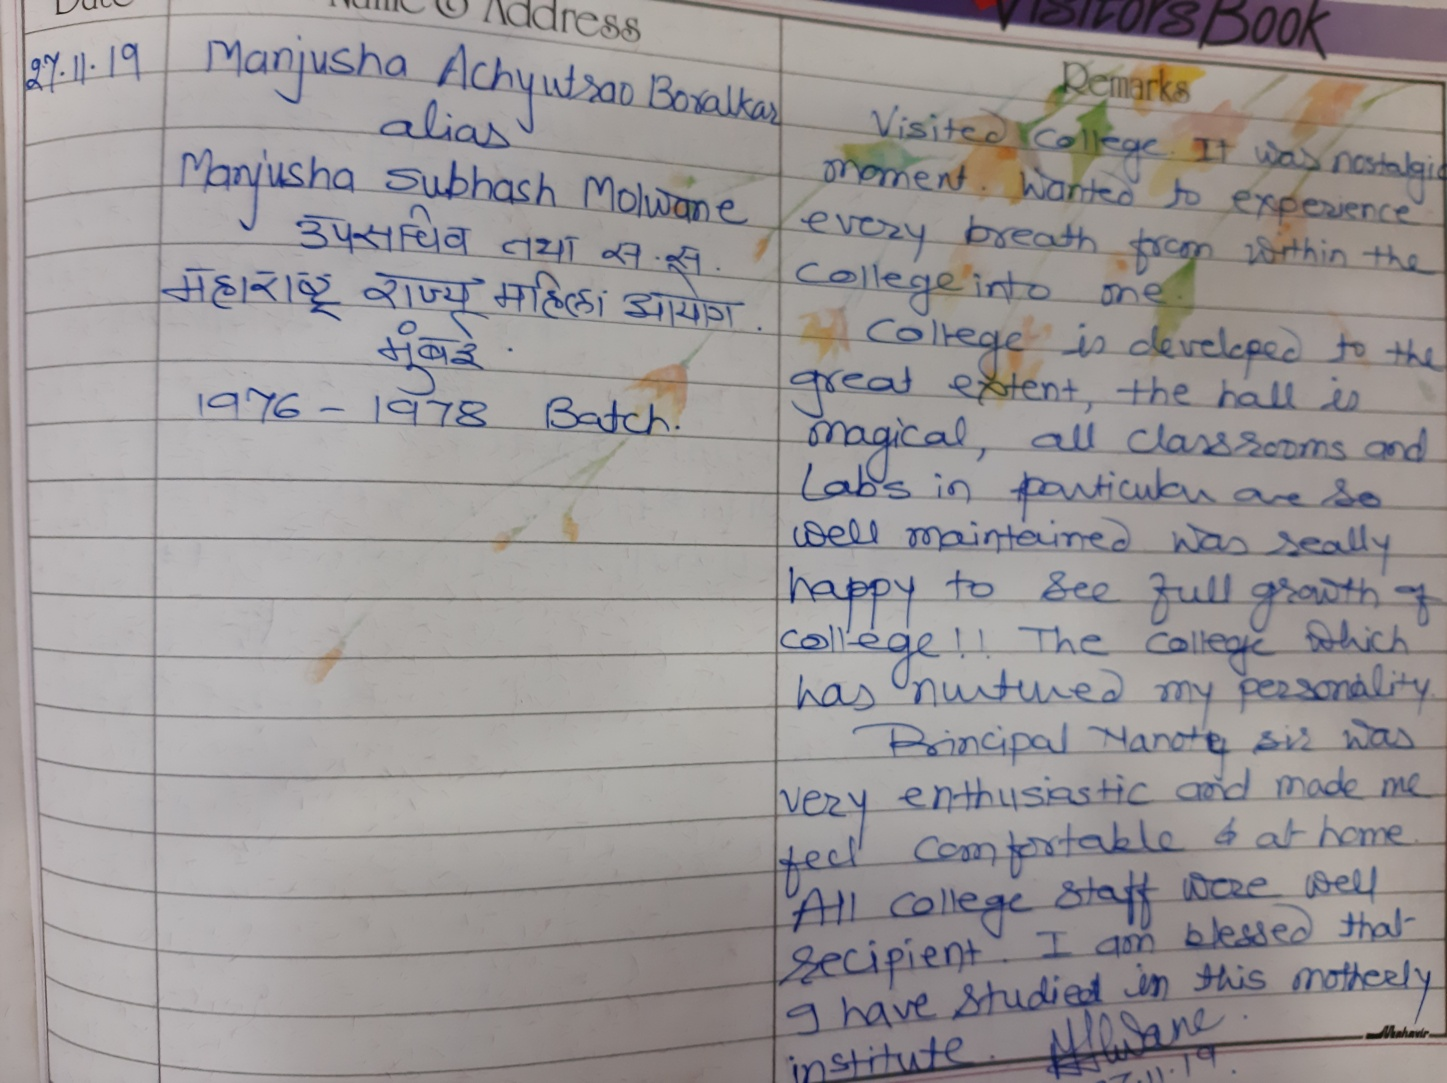 Date
Name & Address
Visitors Book
Remarks
27.11.19
Manjusha Achyutrao Boralkar
alias
Manjusha Subhash Molwane
उपसचिव तथा स.से.
महाराष्ट्र राज्य महिला आयोग.
मुंबई.
1976 - 1978 Batch.
Visited College. It was nostalgic
moment. Wanted to experience
every breath from within the
college into me.
College is developed to the
great extent, the hall is
magical, all classrooms and
Labs in particular are so
well maintained was really
happy to see full growth of
college!! The college which
has nurtured my personality.
Principal Nanoty sir was
very enthusiastic and made me
feel comfortable & at home.
All college staff were well
recipient. I am blessed that
I have studied in this motherly
institute.
Mahavir